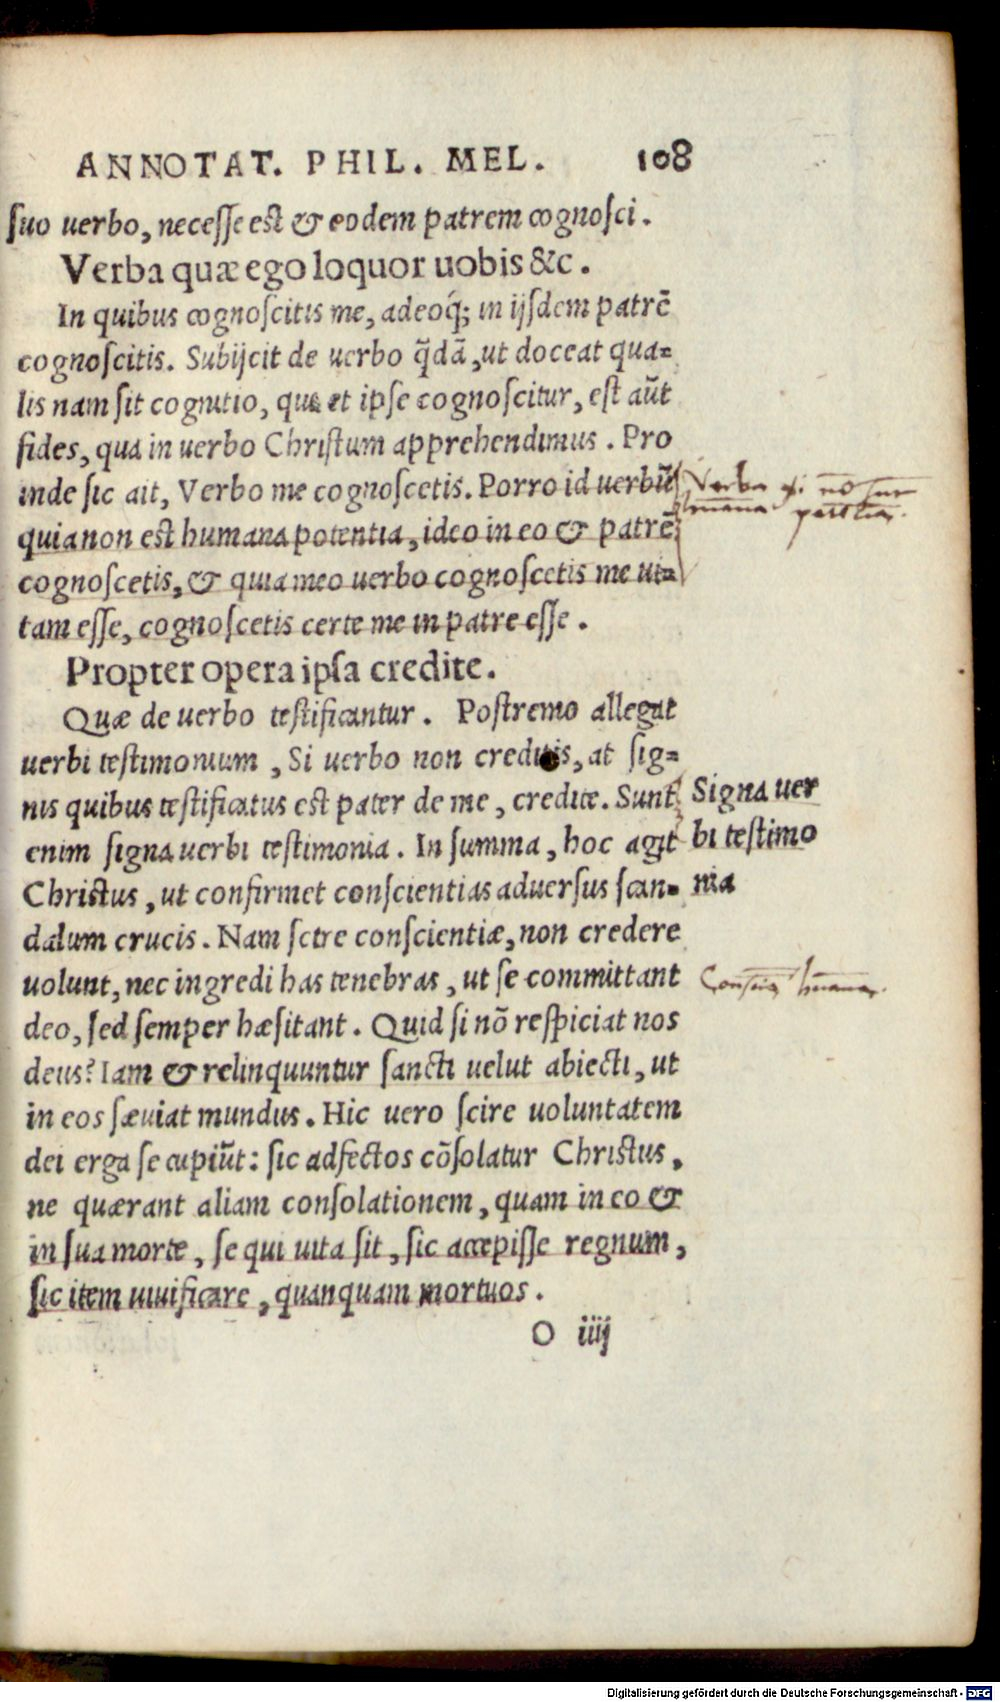 ANNOTAT. PHIL. MEL. 108
ſuo uerbo, neceſſe est & eodem patrem cognoſci.
Verba quæ ego loquor uobis &c.
In quibus cognoſcitis me, adeoq́; in ijſdem patrē
cognoſcitis. Subijcit de uerbo q̄dā, ut doceat qua=
lis nam ſit cognitio, qua et ipſe cognoſcitur, eſt aūt
fides, qua in uerbo Chriſtum apprehendimus. Pro
inde ſic ait, Verbo me cognoſcetis. Porro id uerbū
quia non est humana potentia, ideo in eo & patrē
cognoſcetis, & quia meo uerbo cognoſcetis me ui=
tam eſſe, cognoſcetis certe me in patre eſſe.
Verba  nō
humana
Propter opera ipſa credite.
Quæ de uerbo teſtificantur. Poſtremo allegat
uerbi teſtimonium, Si uerbo non creditis, at ſig=
nis quibus teſtificatus est pater de me, credite. Sunt
enim ſigna uerbi teſtimonia. In ſumma, hoc agit
Christus, ut confirmet conſcientias aduerſus ſcan=
Signa uer
bi teſtimo
nia
dalum crucis. Nam ſcire conſcientiæ, non credere
uolunt, nec ingredi has tenebras, ut ſe committant
deo, ſed ſemper hæſitant. Quid ſi nō reſpiciat nos
deus? Iam & relinquuntur ſancti uelut abiecti, ut
in eos ſæuiat mundus. Hic uero ſcire uoluntatem
dei erga ſe cupiūt: ſic adfectos cōſolatur Christus,
ne quærant aliam conſolationem, quam in eo &
in ſua morte, ſe qui uita ſit, ſic accepiſſe regnum,
ſic item uiuificare, quanquam mortuos.
O iiij
Digitalisierung gefördert durch die Deutsche Forschungsgemeinschaft - DFG